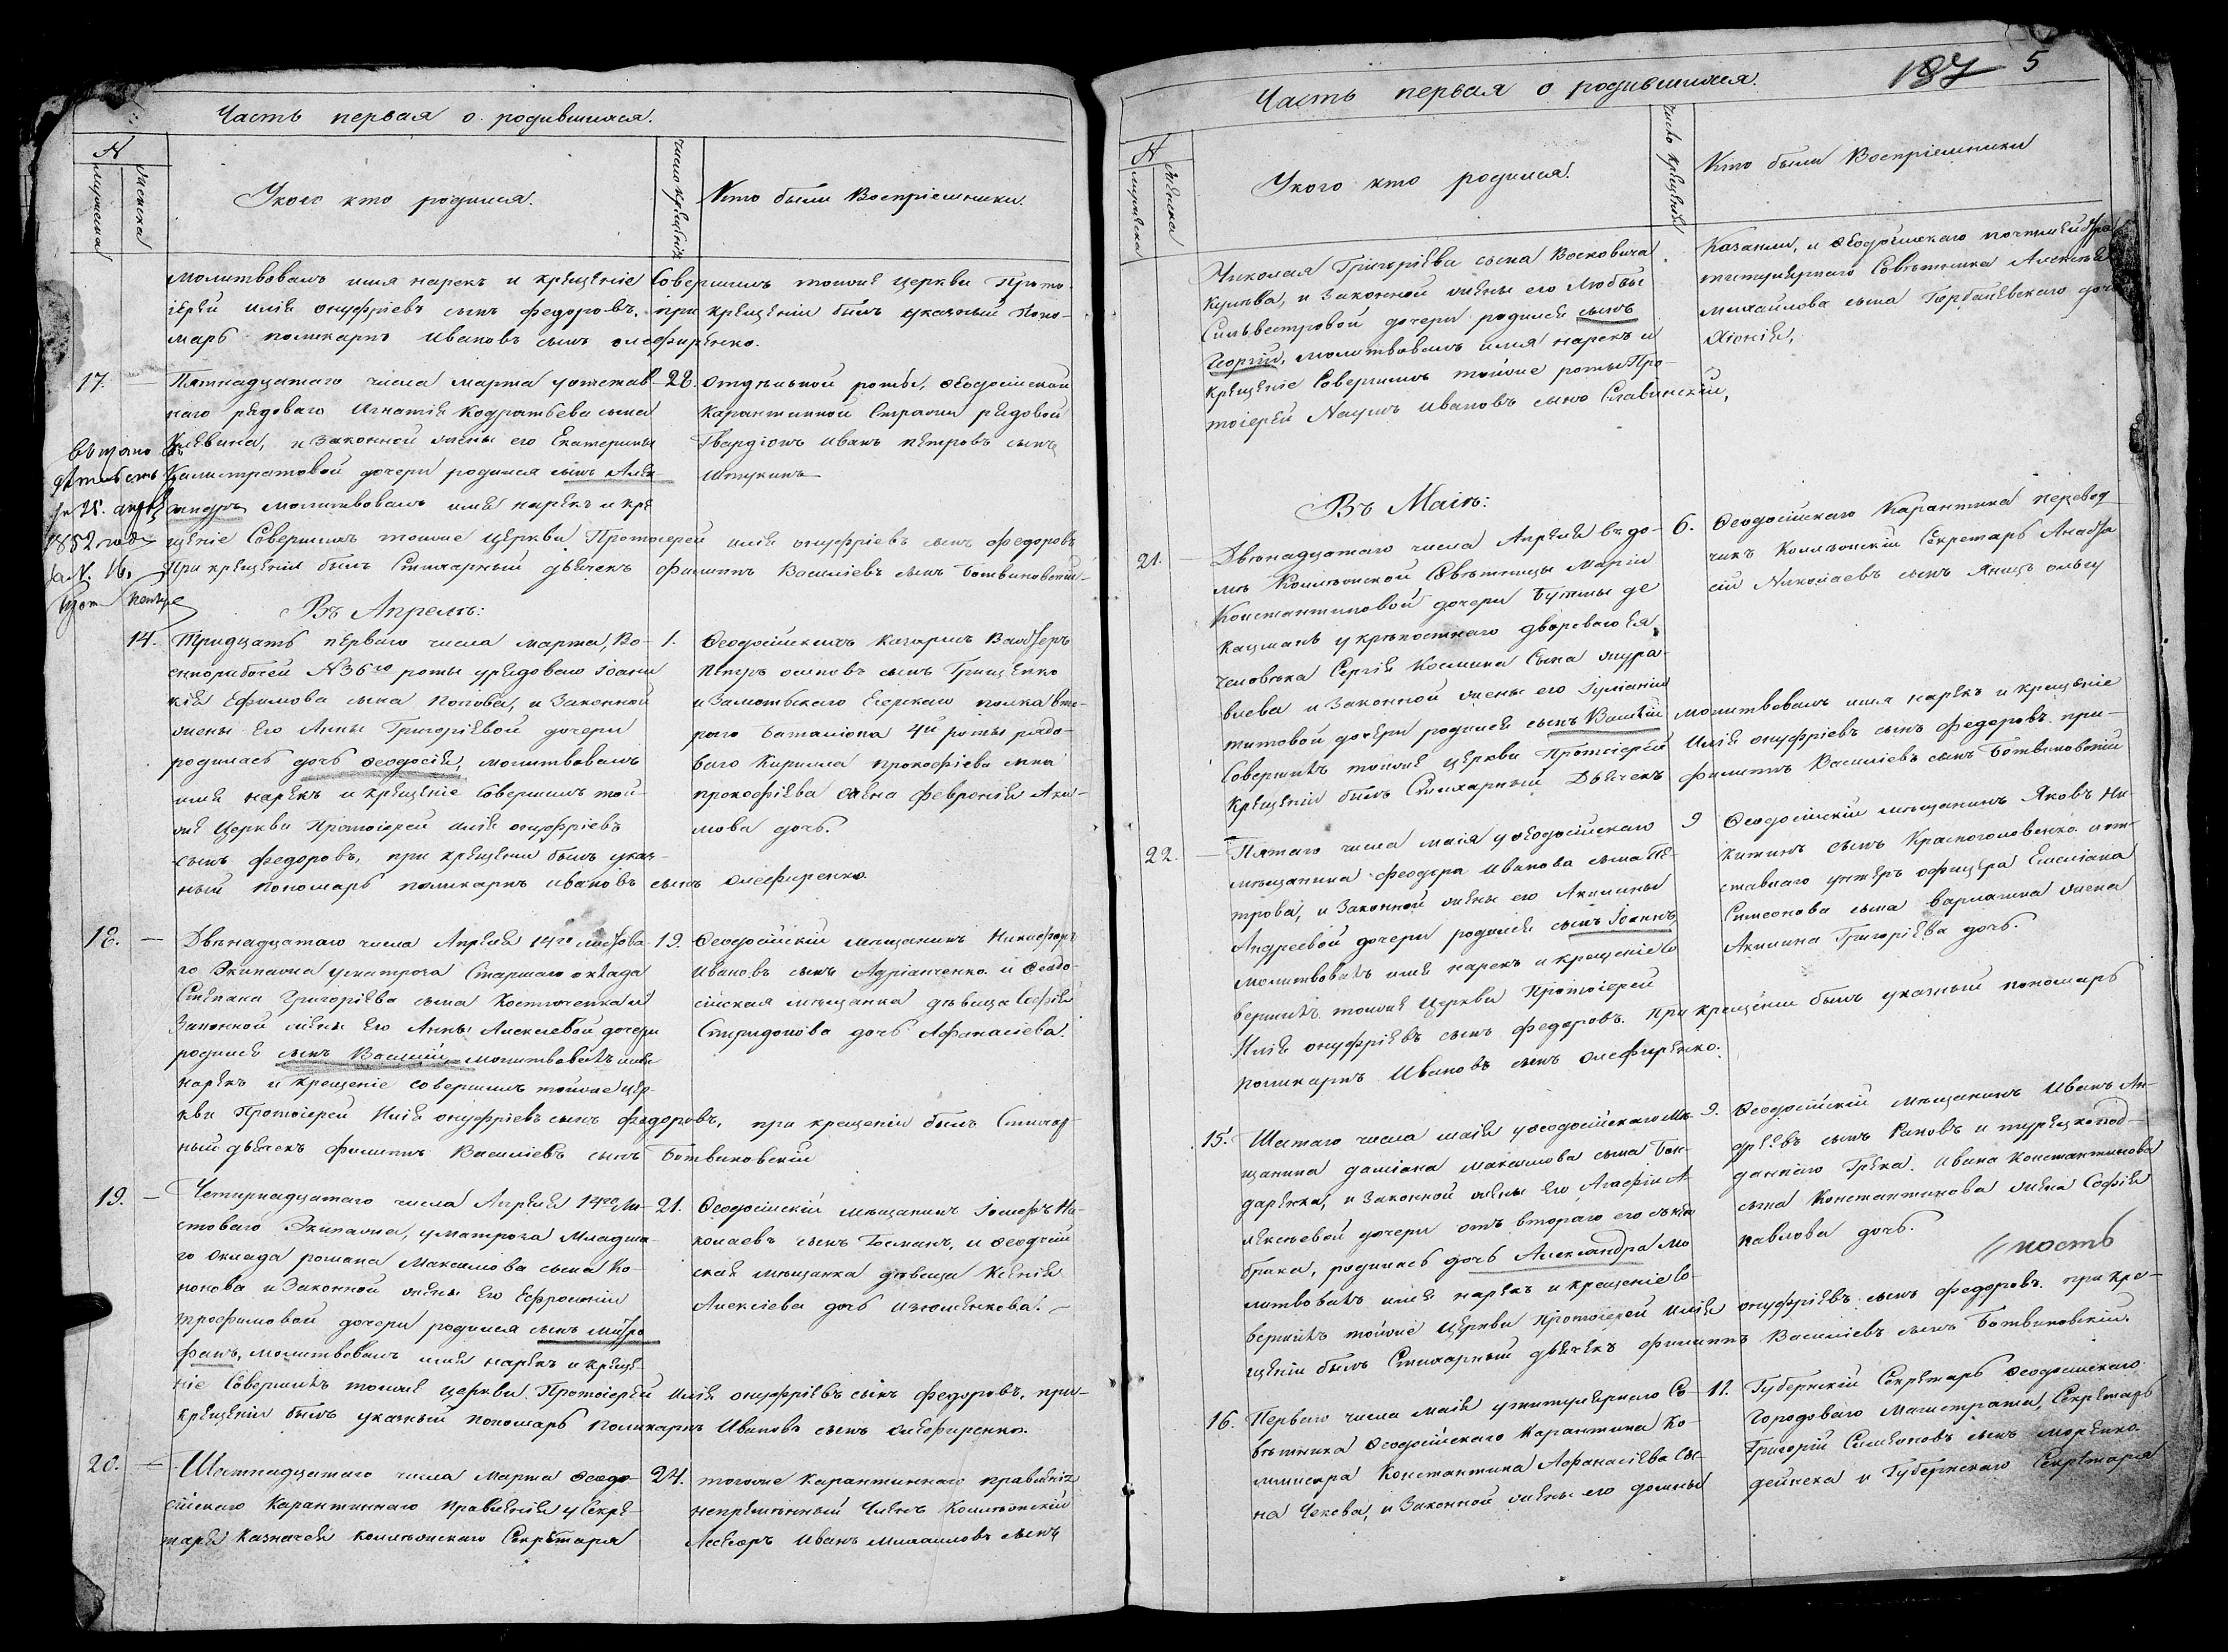 Часть первая о родившихся.
№
мужеска
женска
У кого кто родился.
число крещенія
Кто были Воспріемники.
молитвовалъ имя нарекъ и крещеніе Совершилъ тойже церкви Прото-
іерей Илія онуфріевъ сынъ федоровъ. при крещеніи былъ указный Поно-
марь поликарпъ Ивановъ сынъ олефиренко.
17. — Пятнадцатаго числа марта уотстав-
наго рядоваго Игнатія Кодратьева сына
и Законной жены его Екатерины
Калистратовой дочери родился сынъ Алек-
сандръ молитвовалъ имя нарекъ и кре
28. Отдельной роты, Феодосійской
Карантинной Стражи рядовой
Гвардіонъ Иванъ петровъ сынъ
щеніе Совершилъ тойже церкви Протоіерей Илія онуфріевъ сынъ федоровъ
При крещеніи былъ Стихарный дьячекъ филиппъ Василіевъ сынъ Ботвиновскій
1852 года
за №. 16,
Въ Апрелѣ:
14. Тридцать перваго числа марта, Во-
еннорабочей №36го роты урядоваго Іоани
кія Ефимова сына Попова, и Законной
жены Его Анны Григоріевой дочери
родилась дочь Феодосія, молитвовалъ
имя нарекъ и крещеніе Совершилъ той-
же Церкви Протоіерей Илія онуфріевъ
сынъ федоровъ, при крещеніи былъ указ-
ный пономарь поликарпъ Ивановъ сынъ Олефиренко.
1. Феодосійскихъ казармъ
Петръ осиповъ сынъ Грищенко
и Замостьскаго Егерскаго полка вто-
раго баталіона 4й роты рядо-
ваго Кирилла прокофіева сына
прокофіева жена Февронія Аки-
мова дочь.
18. — Двенадцатаго числа Апреля 14го ластова-
го Экипажа уматроза Старшаго оклада
Степана Григоріева сына Костюченка и
Законной жены Его Анны Алексіевой дочери
родился сынъ Василій, молитвовалъ имя
нарекъ и крещеніе совершилъ тойже цер-
кви Протоіерей Илія онуфріевъ сынъ федоровъ, при крещеніи былъ Стихар-
ный дьячекъ филиппъ Василіевъ сынъ Ботвиновскій
19. Феодосійскій мещанинъ Никифоръ
Ивановъ сынъ Адріанченко и Феодо-
сійская мещанка девица Софія
Спиридонова дочь Афанасіева.
19. — Четырнадцатаго числа Апреля 14го Ла-
стоваго Экипажа, уматроза Младша-
го оклада романа Максимова сына Ко-
нонова и Законной жены Его Ефросиніи
трофимовой дочери родился сынъ Митро
фанъ, молитвовалъ имя нарекъ и креще-
ніе Совершилъ тойже церкви Протоіерей Илія онуфріевъ сынъ федоровъ, при-
крещеніи былъ указный пономарь Поликарпъ Ивановъ сынъ Олефиренко.
21. Феодосійскій мещанинъ Іосифъ Ни-
колаевъ сынъ Госманъ, и Феодосій
ская мещанка девица Ксенія
Алексіева дочь
20. — Шатнадцатаго числа Марта Феодо-
сійскаго Карантиннаго Правленія у Секре-
таря Казначея коллежскаго Секретаря
24. тогоже Карантиннаго правленія
непременный Членъ Коллежскій
Асесоръ Иванъ Михаиловъ сынъ
187 5
Часть первая о родившихся.
№
мужеска
женска
У кого кто родился.
число крещенія
Кто были Воспріемники
Николая Григоріева сына Восковича
и Законной жены его Любови
Сильвестровой дочери родился сынъ
Георгій, молитвовалъ имя нарекъ и
крещеніе Совершилъ тойже роты Про-
тоіерей Наумъ Ивановъ сынъ Славинскій,
Казанли, и Феодосійскаго почтмейстра
титулярнаго Советника Алексія
михаилова сына Горбачевскаго дочь
Хіонія,
Въ Маіѣ:
21. — Двенадцатаго числа Апреля въ до-
ме Коллежской Советницы Маріи
Константиновой дочери
Кацмань укрепостнаго двороваго ея
человека Сергія Космина Сына жура-
влева и Законной жены его Іуліаніи
титовой дочери родился сынъ Василій молитвовалъ имя нарекъ и крещеніе
Совершилъ тойже церкви Протоіерей Илія онуфріевъ сынъ федоровъ. при-
крещеніи былъ Стихарный Дьячекъ филиппъ Василіевъ сынъ Ботвиновскій
6. Феодосійскаго Карантина перевод
чикъ Коллежскій Секретарь Анаста
сій Николаевъ сынъ
22. — Пятаго числа маія уФеодосійскаго
мещанина феодора Иванова сына Пе-
трова, и Законной жены его Акилины
Андреевой дочери родился сынъ Іоаннъ
молитвовалъ имя нарекъ и крещеніе со
вершилъ тойже Церкви Протоіерей
Илія онуфріевъ сынъ федоровъ. При крещеніи былъ указный пономарь
поликарпъ Ивановъ сынъ Олефиренко.
9 Феодосійскій мещанинъ Яковъ Ни
китинъ сынъ Красноголовенко и от-
ставнаго унтеръ офицера Емеліана
Симеонова сына Варлагина жена
Акилина Григоріева дочь.
15. Шатаго числа маія уФеодосійскаго Ме-
щанина даміана максимова сына Бон-
даренка, и Законной жены Его Агафіи А-
лексеевой дочери отъ втораго его съ нею
брака, родилась дочь Александра мо
литвовалъ имя нарекъ и крещеніе со-
вершилъ тойже Церкви Протоіерей Илія онуфріевъ сынъ федоровъ. при кре-
щеніи былъ Стихарный дьячекъ филиппъ Василіевъ сынъ Ботвиновскій.
9. Феодосійскій мещанинъ Иванъ Ан-
дреевъ сынъ Раковъ и турецкопод-
даннаго Грека Ивана Константинова
сына Константинова жена Софія
павлова дочь.
16. Перваго числа маія утитулярнаго Со-
ветника Феодосійскаго Карантина Ко-
мисара Константина Афанасіева Сы-
на Чехова, и Законной жены его домны
11. Губернскій Секретарь Феодосійскаго
Городоваго Магистрата, Секретарь
Григорій Симеоновъ сынъ
дейнека и Губернскаго Секретаря